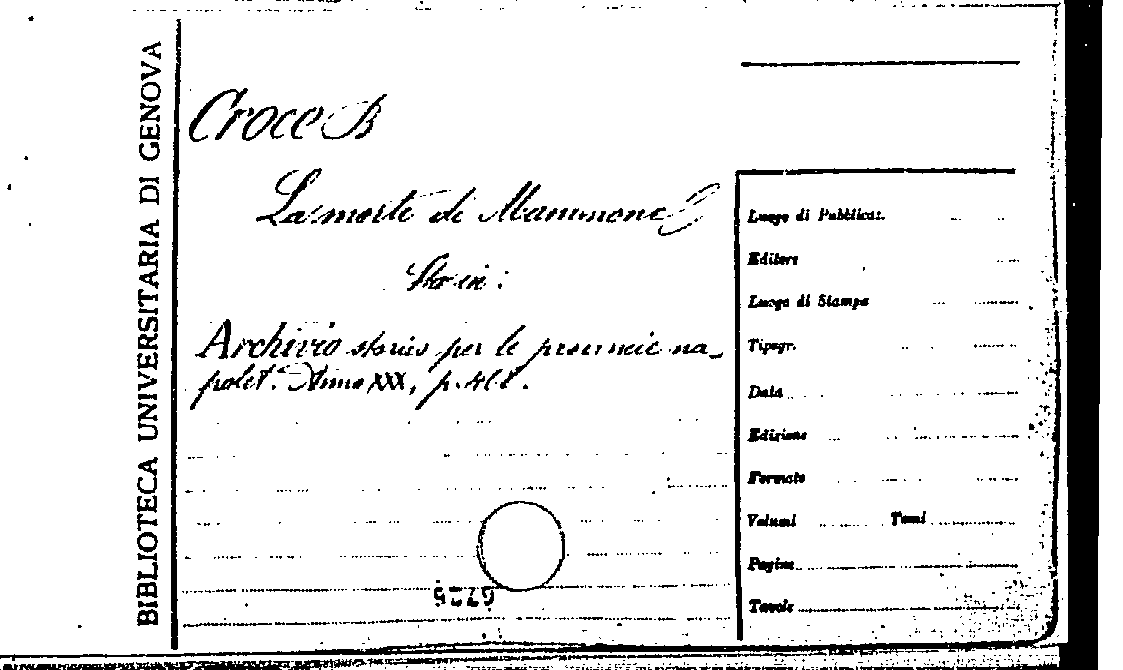 BIBLIOTECA UNIVERSITARIA DI GENOVA
Croce B
La morte di Mammone
Sta in:
Archivio storico per le provincie na_
polet. Anno XXX, p.
Luogo di Pubblicaz.
Editore
Luogo di Stampa
Tipogr.
Data
Edizione
Formato
Volumi Tomi
Pagine
Tavole